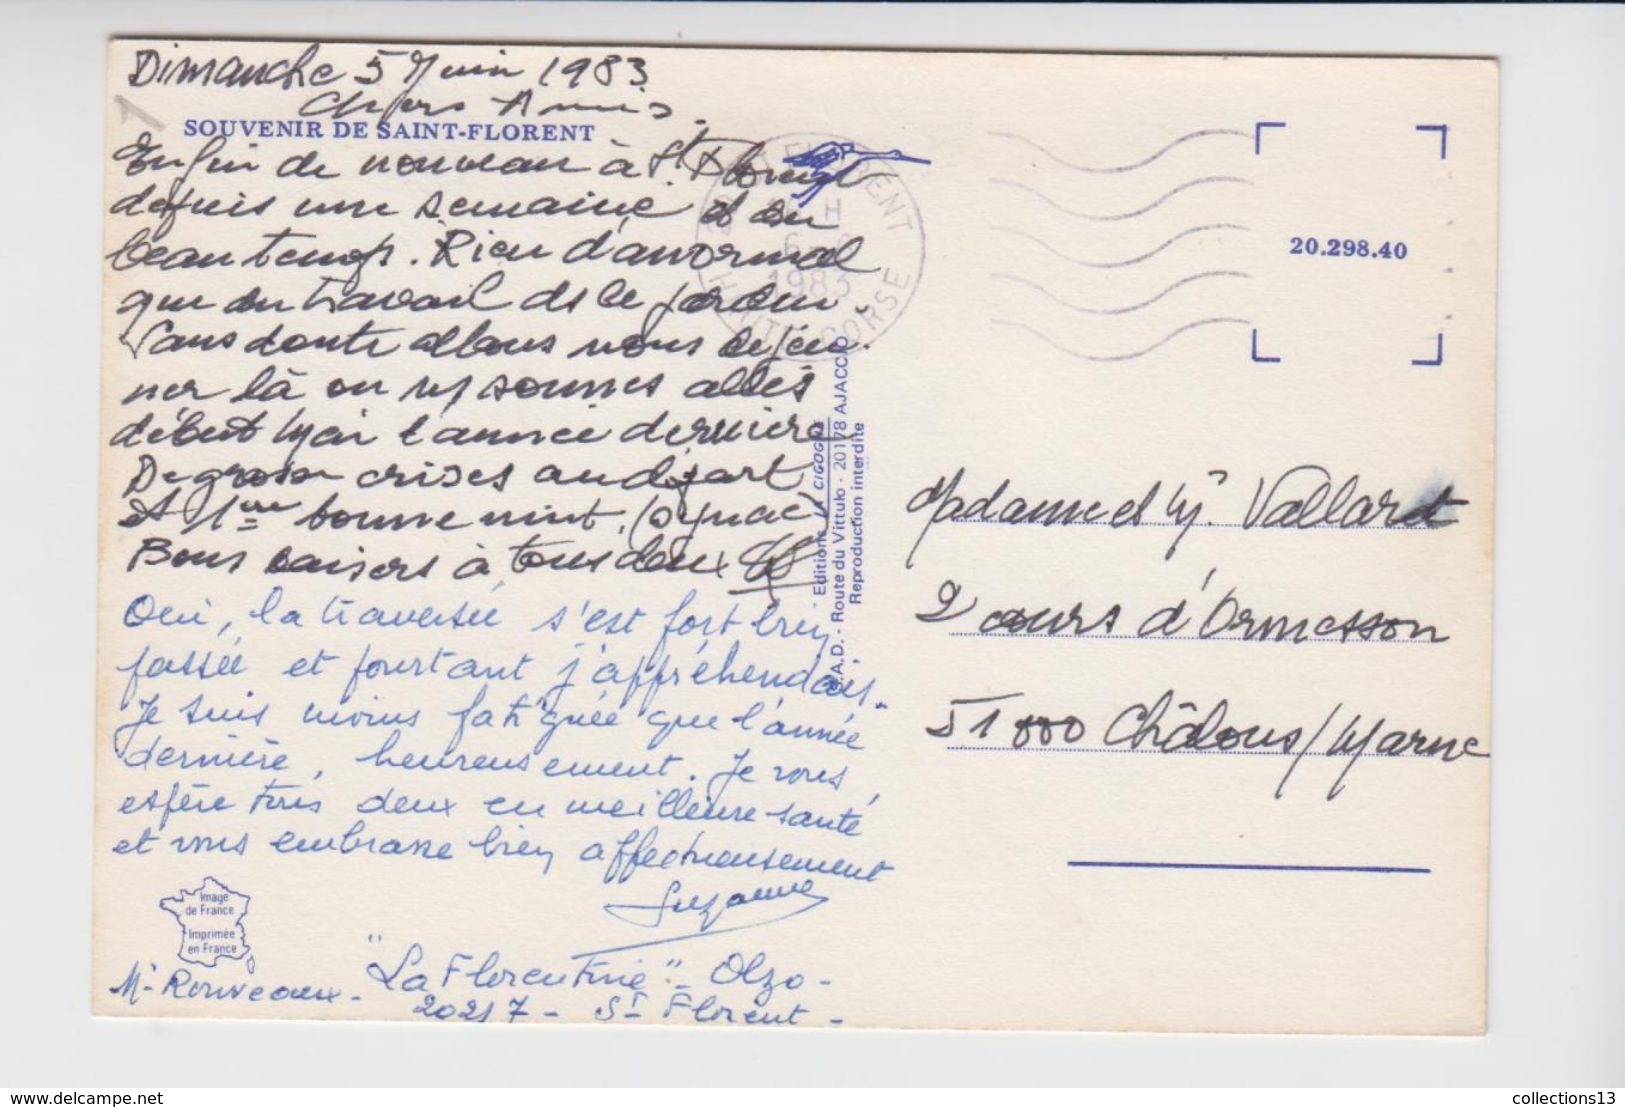 Dimanche 5 Juin 1983
Chers Amis.
SOUVENIR DE SAINT-FLORENT
Enfin de nouveau à St Florent
depuis une semaine et du
beau temps. Rien d'anormal
que du travail ds le jardin.
Sans doute allons nous déjeu-
ner là où ns sommes allés
début Mai l'année dernière
De grosses crises au départ
et 1ère bonne nuit
Bons baisers à tous deux
Oui, la traversée s'est fort bien
passée et pourtant j'appréhendais.
Je suis moins fatiguée que l'année
dernière, heureusement. Je vous
espère tous deux en meilleure santé
et vous embrasse bien affectueusement
Suzanne
Image
de France
Imprimée
en France
"La Florentine" - Olzo -
Mr Rouveaux -
20217 - St Florent -
Editions LA CIGOGNE
Route du Vittulo - 20178 AJACCIO
Reproduction interdite
FLORENT
H
1983
HAUTE CORSE
20.298.40
Madame et M. Vallaret
2 cours d'Ormesson
51000 Châlons/Marne
https://www.delcampe.net
collections13